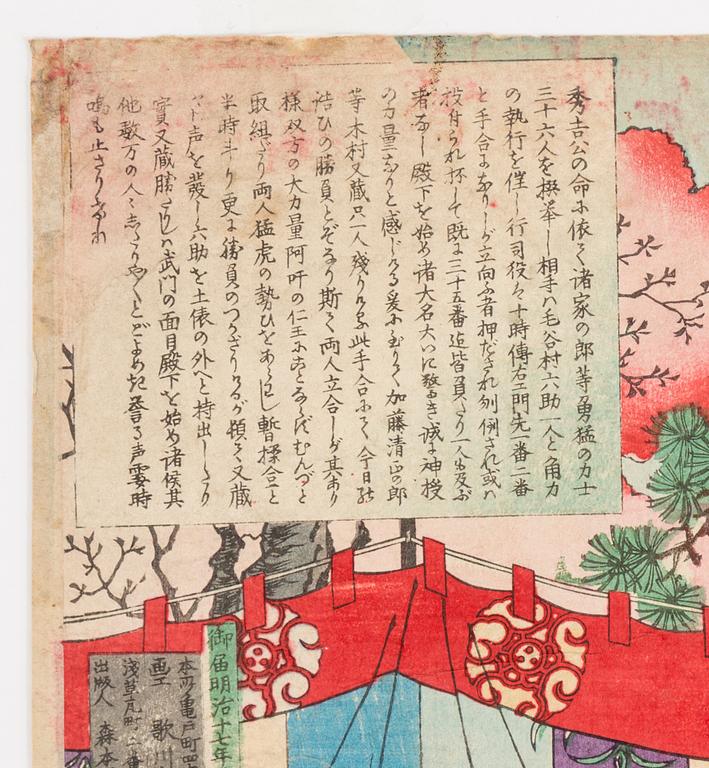 秀吉公の命に依て諸家の郎等勇猛の力士
三十六人を撰挙し相手ハ毛谷村六助一人と角力
の執行を催し行司役ハ十時傳右エ門先一番二番
と手合になりしが立向ふ者押だされ刎倒され或ハ
投付られ抔して既に三十五番迄皆負たり一人も及ぶ
者なし殿下を始め諸大名大いに驚き誠に神授
の力量なりと感じける爰に至りて加藤清正の郎
等木村又蔵只一人残りける此手合にて今日の
諸ひの勝負とぞなり斯て両人立合しが其あり
様双方の大力量阿吽の仁王にことならずむんづと
取組たり両人猛虎の勢ひをあらハし暫揉合こと
半時斗り更に勝負のつかざりけるが頓て又蔵
声を発し六助を土俵の外へと持出したり
實又蔵勝たりしハ武門の面目殿下を始め諸侯其
他数万の人々どよめき誉る声霎時
鳴も止ざりけれ
御届明治十七年
本所亀戸町四
画工 歌川
浅草瓦町
出版人 森本